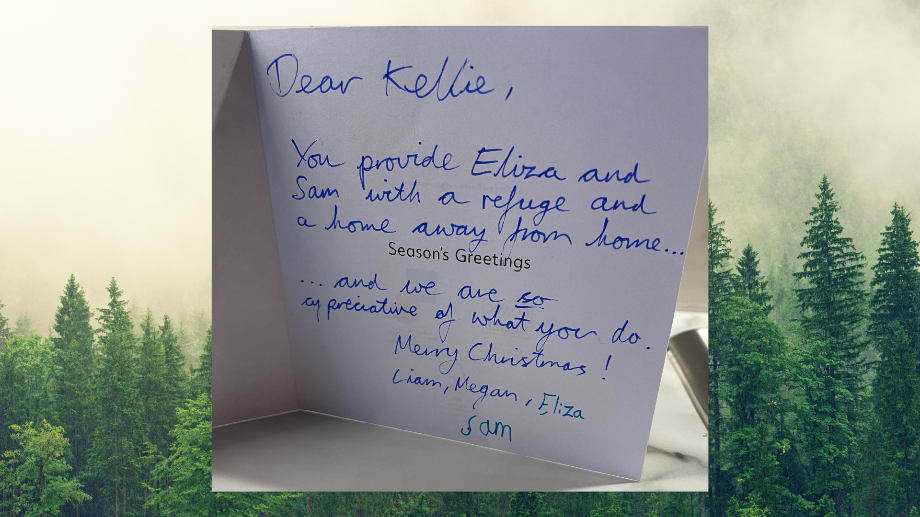 Dear Kellie,
You provide Eliza and
Sam with a refuge and
a home away from home...
Season's Greetings
... and we are so
appreciative of what you do.
Merry Christmas!
Liam, Megan, Eliza
Sam